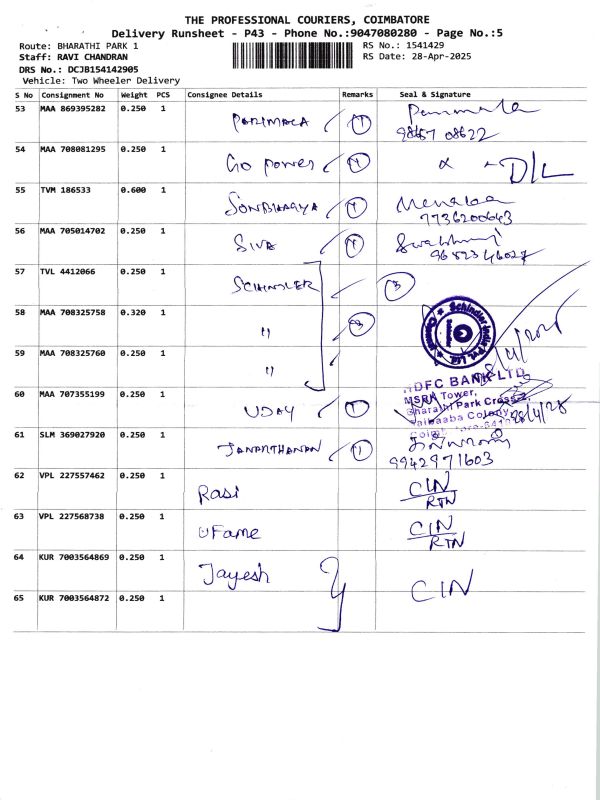 THE PROFESSIONAL COURIERS, COIMBATORE
Delivery Runsheet - P43 - Phone No.:9047080280 - Page No.:5
Route: BHARATHI PARK 1
RS No.: 1541429
Staff: RAVI CHANDRAN
RS Date: 28-Apr-2025
DRS No.: DCJB154142905
Vehicle: Two Wheeler Delivery
S No Consignment No Weight PCS Consignee Details Remarks Seal & Signature
53 MAA 869395282 0.250 1
PARIMALA 1
98657 08622
54 MAA 708081295 0.250 1
Go power 1 D/L
55 TVM 186533 0.600 1
SONBHAGYA 1
7736200643
56 MAA 705014702 0.250 1
SIVA 1
9652346027
57 TVL 4412066 0.250 1
SCHINDLER 3
58 MAA 708325758 0.320 1
" 3
59 MAA 708325760 0.250 1
"
Schindler India Pvt. Ltd.
HDFC BANK LTD
MSRA Tower,
Bharathi Park Cross 2,
Saibaaba Colony,
60 MAA 707355199 0.250 1
UDAY 1
61 SLM 369027920 0.250 1
JANARTHANAN 1
9942971603
62 VPL 227557462 0.250 1
Rasi CIN
RTN
63 VPL 227568738 0.250 1
UFame CIN
RTN
64 KUR 7003564869 0.250 1
Jayesh CIN
65 KUR 7003564872 0.250 1